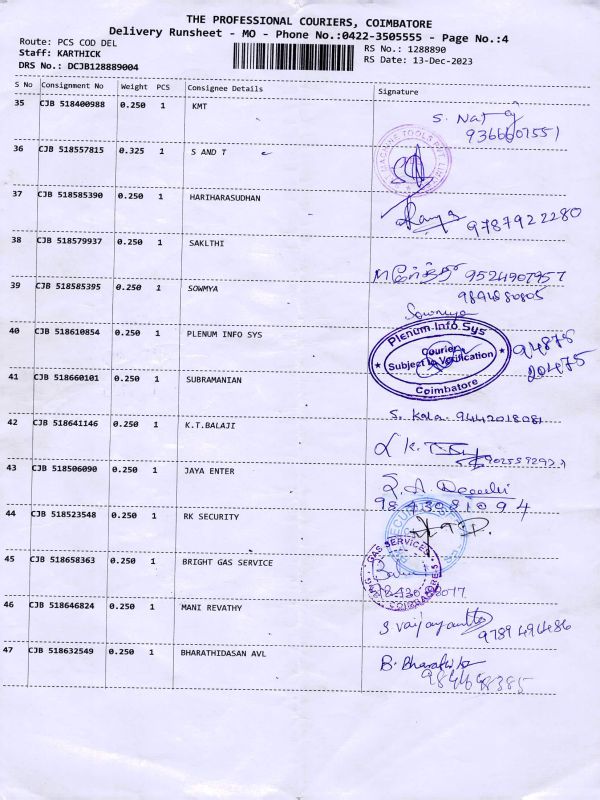 THE PROFESSIONAL COURIERS, COIMBATORE
Delivery Runsheet - MO - Phone No.:0422-3505555 - Page No.:4
Route: PCS COD DEL
Staff: KARTHICK
DRS No.: DCJB128889004
RS No.: 1288890
RS Date: 13-Dec-2023
S No Consignment No Weight PCS Consignee Details Signature
35 CJB 518400988 0.250 1 KMT S. Nat
9366607551
36 CJB 518557815 0.325 1 S AND T
37 CJB 518585390 0.250 1 HARIHARASUDHAN
9787922280
38 CJB 518579937 0.250 1 SAKLTHI
9524907957
39 CJB 518585395 0.250 1 SOWMYA 9894680805
Sowmya
40 CJB 518610854 0.250 1 PLENUM INFO SYS
Plenum Info Sys
Courier
Subject to Verification
Coimbatore
94875
20475
41 CJB 518660101 0.250 1 SUBRAMANIAN
S. Kala 9442018081
42 CJB 518641146 0.250 1 K.T.BALAJI
43 CJB 518506090 0.250 1 JAYA ENTER
9843081094
44 CJB 518523548 0.250 1 RK SECURITY
45 CJB 518658363 0.250 1 BRIGHT GAS SERVICE
GAS SERVICES
COIMBATORE-5
46 CJB 518646824 0.250 1 MANI REVATHY
S Vaijayanthi
9789494486
47 CJB 518632549 0.250 1 BHARATHIDASAN AVL